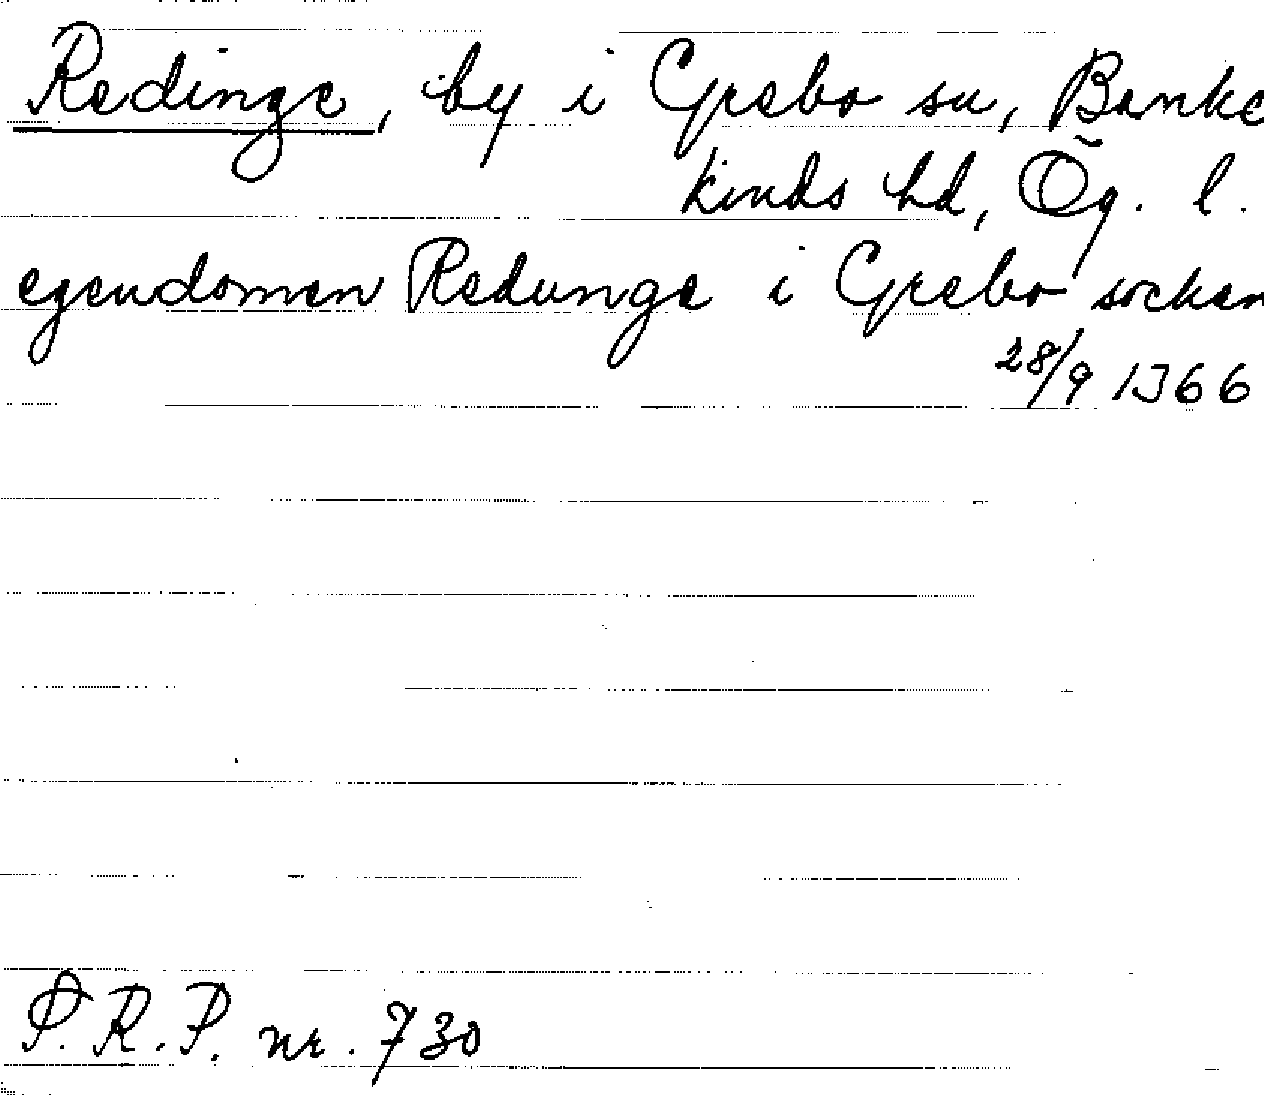 Redinge, by i Grebo sn, Banke
kinds hd, Ög. l.
egendomen Redunge i Grebo socken
28/9 1366
P.R.P. nr. 730